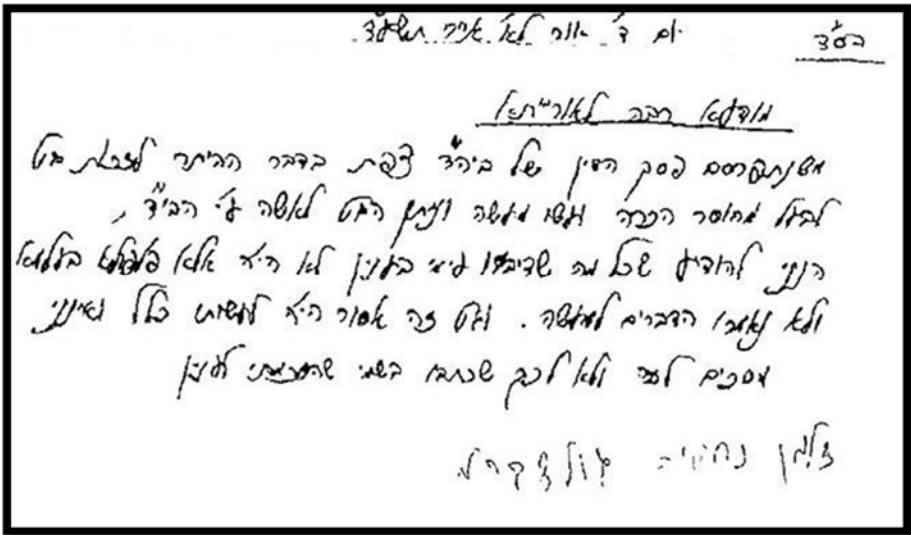 בס"ד
יום ד' אור לא' אייר תשע"ד
מודעא רבה לאורייתא
משנתפרסם פסק הדין של ביה"ד צפת בדבר ההיתר לזכות גט
לבעל מחוסר הכרה ועשו מעשה וניתן הגט לאשה ע"י הביה"ד,
הנני להודיע שכל מה שדיברו עימי בענין לא היה אלא פלפולא בעלמא
ולא נאמרו הדברים למעשה. וגט זה אסור היה לעשותו כלל ואינני
מסכים לזה ולא לכך שכתבו בשמי שהסכמתי לענין
זלמן נחמיה גולדברג